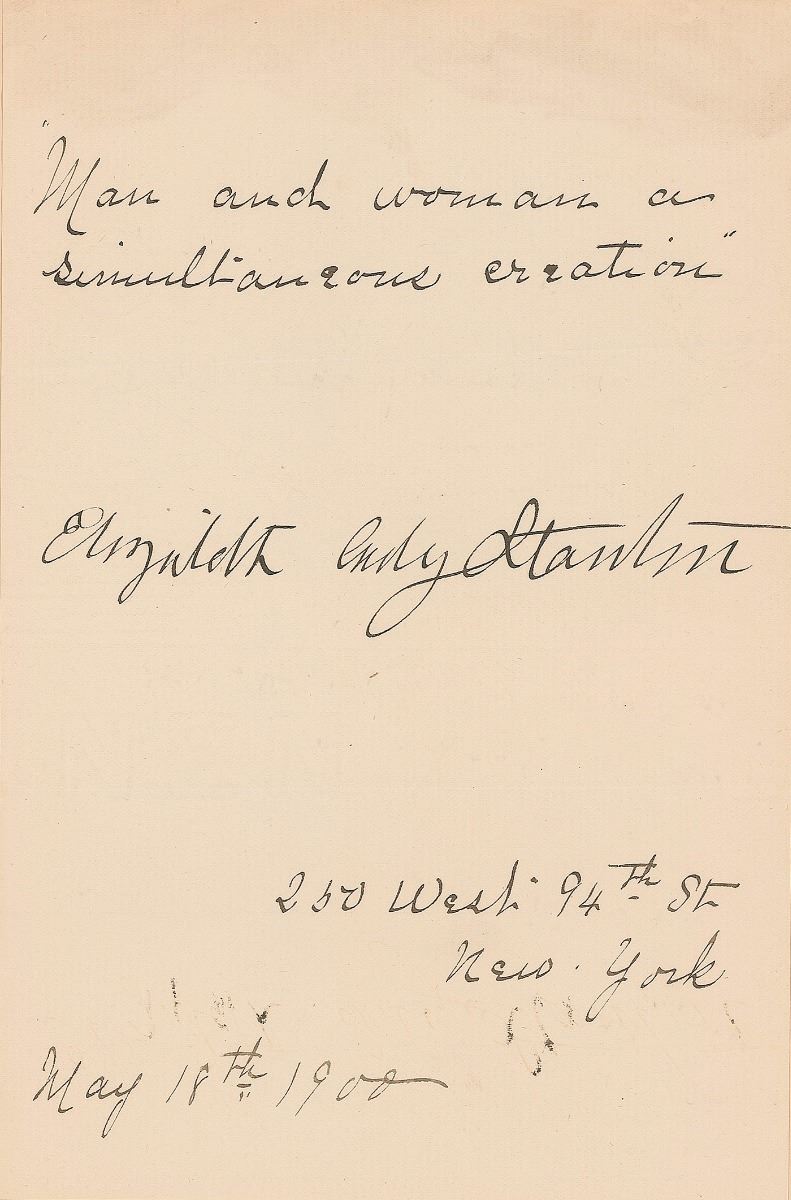 "Man and woman a
simultaneous creation"
Elizabeth Cady Stanton
250 West 94th St
New York
May 18th 1900